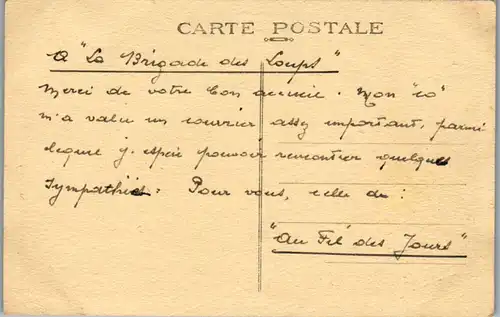 CARTE POSTALE
A "La Brigade des Loups"
Merci de votre bon accueil. Mon "10"
m'a valu un courrier assez important, parmi
lequel j'espère pouvoir rencontrer quelques
sympathies. Pour vous, celle de:
"Au Fil des Jours"